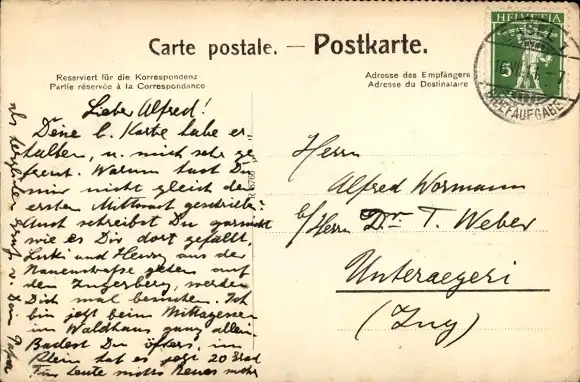 Carte postale. — Postkarte.
HELVETIA
5
BASEL 1
BRIEFAUFGABE
Reserviert für die Korrespondenz
Partie réservée à la Correspondance
Adresse des Empfängers
Adresse du Destinataire
Lieber Alfred!
Deine l. Karte habe er-
halten, u. mich sehr ge-
freut. Warum hast Du
mir nicht gleich den
ersten Mittwoch geschrieben?
Auch schreibst Du garnicht
wie es Dir dort gefällt,
und Henry aus der
gehen auf
den Zugerberg, werden
Dich mal besuchen. Ich
bin jetzt beim Mittagessen
im Waldhaus ganz allein
Badest Du öfters, im
Rhein hat es jezt 20 Grad
Für heute nichts Neues mehr
als herzlichen Gruss v. Dein
Herrn
Alfred Wormann
b/Herrn Dr. T. Weber
Unteraegeri
(Zug)